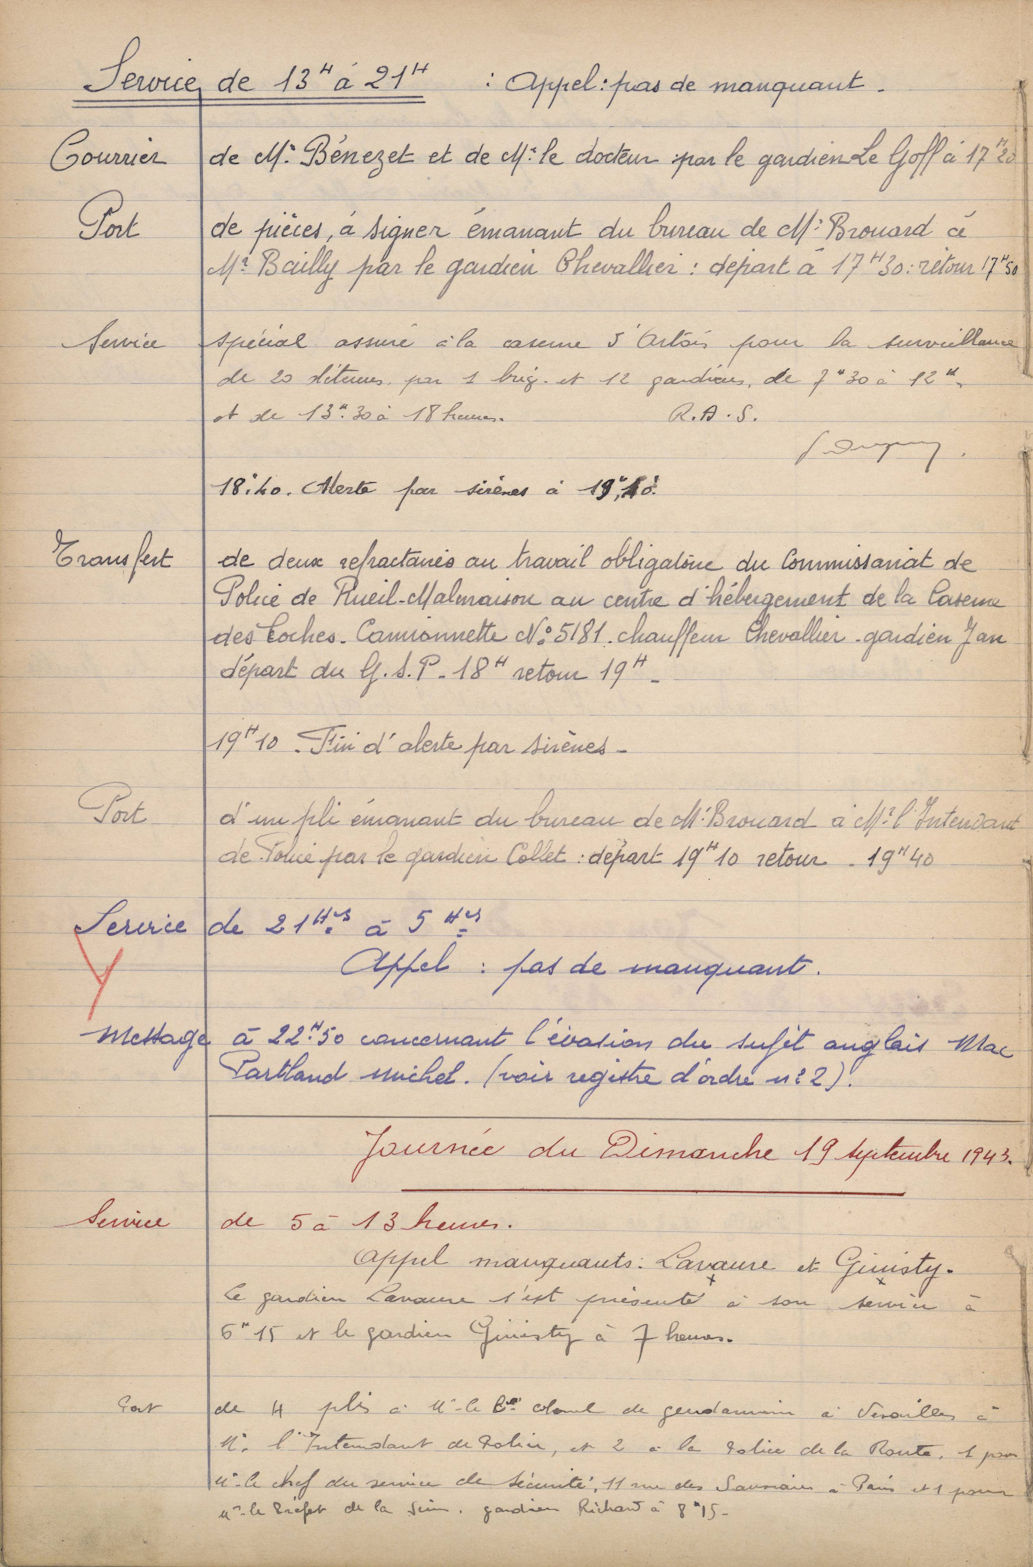 Service de 13H à 21H : Appel : pas de manquant.
Courrier de Mr Bénezet et de Mr le docteur par le gardien Le Goff à 17H20
Port de pièces, à signer émanant du bureau de Mr Brouard à
Mr Bailly par le gardien Chevallier : départ à 17H30 : retour 17H50
Service spécial assuré à la caserne d'Artois pour la surveillance
de 20 détenus par 1 brig. et 12 gardiens, de 7H30 à 12H
et de 13H30 à 18 heures. R.A.S.
18H40. Alerte par sirènes à
Transfert de deux refractaires au travail obligatoire du Commissariat de
Police de Rueil-Malmaison au centre d'hébergement de la Caserne
des Loches. Camionnette No 5181. chauffeur Chevallier - gardien Jan
départ du G.S.P. 18H retour 19H -
19H10. Fin d'alerte par sirènes -
Port d'un pli émanant du bureau de Mr Brouard à Mr l'Intendant
de Police par le gardien Collet : départ 19H10 retour - 19H40
Service de 21Hrs à 5Hrs
Appel : pas de manquant.
Message à 22H50 concernant l'évasion du sujet anglais Mac
Partland Michel. (voir registre d'ordre no 2).
Journée du Dimanche 19 septembre 1943.
Service de 5 à 13 heures.
Appel manquants : Lavaure et Ginisty.
Le gardien Lavaure s'est présenté à son service à
6H15 et le gardien Ginisty à 7 heures.
Port de 4 plis à Mr le Colonel de gendarmerie à Versailles à
Mr l'Intendant de Police, et 2 à la Police de la Route. 1 pour
Mr le chef du service de sécurité, 11 rue des Saussaies à Paris et 1 pour
Mr le Préfet de la Seine. gardien Richard à 8H15 -